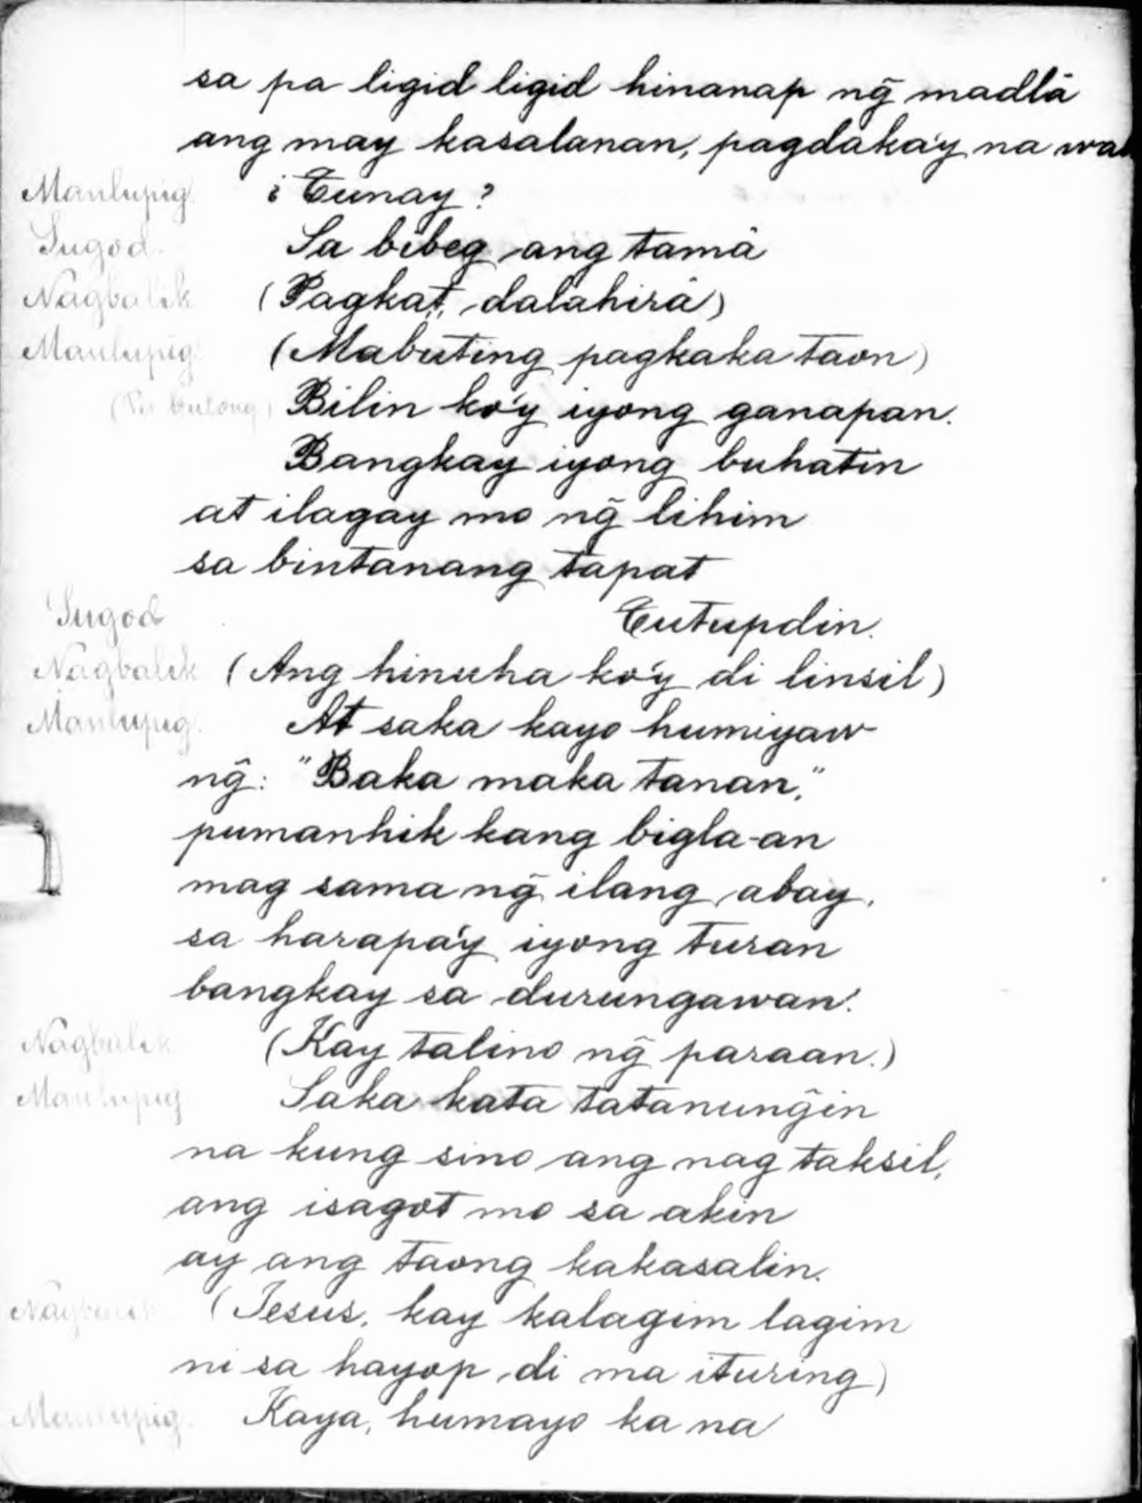 sa pa ligid ligid hinanap ng̃ madlâ
ang may kasalanan, pagdaka'y na
Manlupig. ¿Tunay?
Sugod. Sa bibeg ang tamâ
Nagbalik (Pagkat, dalahirâ)
Manlupig. (Mabuting pagkaka taon)
(Pa bulong) Bilin ko'y iyong ganapan.
Bangkay iyong buhatin
at ilagay mo ng̃ lihim
sa bintanang tapat
Sugod Tutupdin.
Nagbalik (Ang hinuha ko'y di linsil)
Manlupig. At saka kayo humiyaw
ng̃: "Baka maka tanan,"
pumanhik kang bigla-an
mag sama ng̃ ilang abay,
sa harapa'y iyong turan
bangkay sa durungawan!
Nagbalik (Kay talino ng̃ paraan.)
Manlupig Saka kata tatanung̃in
na kung sino ang nag taksil,
ang isagot mo sa akin
ay ang taong kakasalin.
Nagbalik (Jesus, kay kalagim lagim
ni sa hayop di ma ituring)
Manlupig. Kaya, humayo ka na